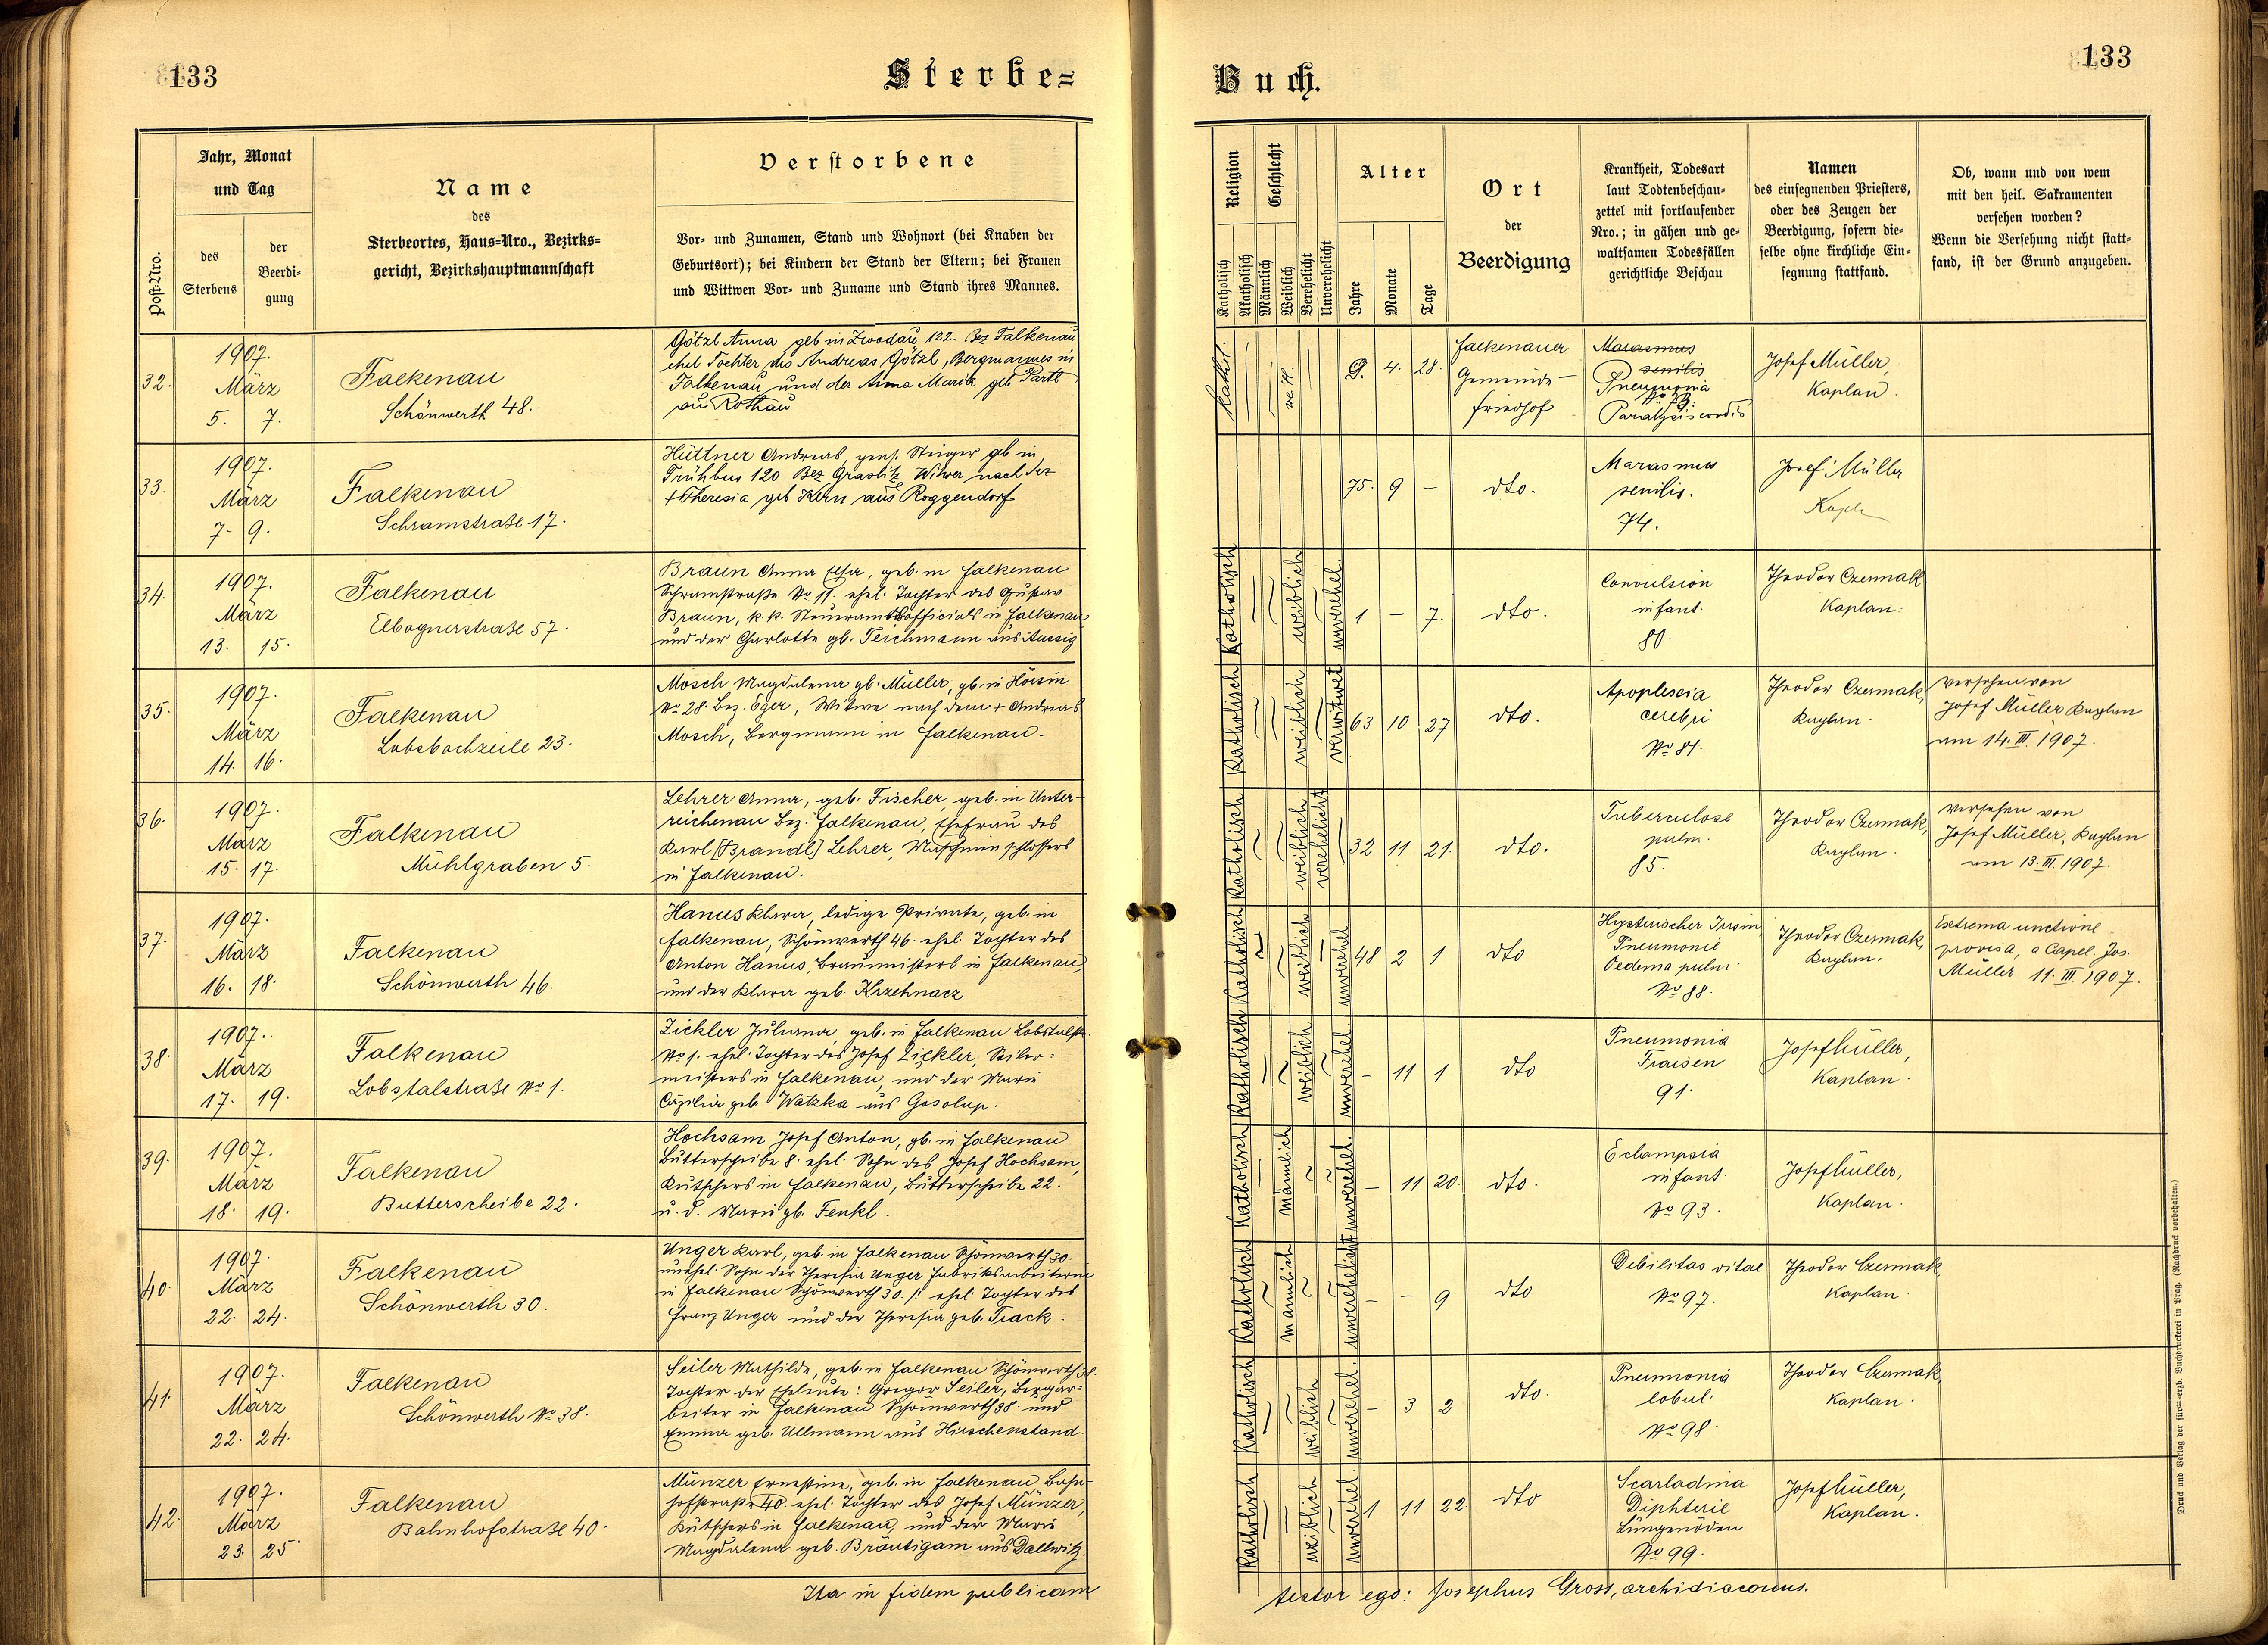 133
Sterbe=
Buch.
133
Post-Nro.
Jahr, Monat
und Tag
des
Sterbens
der
Beerdi-
gung
Name
des
Sterbeortes, Haus=Nro., Bezirks=
gericht, Bezirkshauptmannschaft
Verstorbene
Vor- und Zunamen, Stand und Wohnort (bei Knaben der
Geburtsort); bei Kindern der Stand der Eltern; bei Frauen
und Wittwen Vor- und Zuname und Stand ihres Mannes.
Religion
Katholisch
Akatholisch
Geschlecht
Männlich
Weiblich
Verehelicht
Unverehelicht
Alter
Jahre
Monate
Tage
Ort
der
Beerdigung
Krankheit, Todesart
laut Todtenbeschau-
zettel mit fortlaufender
Nro.; in gähen und ge-
waltsamen Todesfällen
gerichtliche Beschau
Namen
des einsegnenden Priesters,
oder des Zeugen der
Beerdigung, sofern die-
selbe ohne kirchliche Ein-
segnung stattfand.
Ob, wann und von wem
mit den heil. Sakramenten
versehen worden?
Wenn die Versehung nicht statt-
fand, ist der Grund anzugeben.
32.
1907.
März
5. 7.
Falkenau
Schönwerth 48.
Götzl Anna geb in Zwodau 122. Bez Falkenau
ehel Tochter des Andreas Götzl, Bergmannes in
Falkenau und der Anna Maria geb Partl
au Rothau
kathol.
9. 4. 28.
Falkenauer
Gemeinde-
friedhof
Marasmus
senilis
Pneumonia
Paralysis cordis
Josef Müller,
Kaplan.
33.
1907.
März
7- 9.
Falkenau
Schramstraße 17.
Hüttner Andreas, pens. Steiger geb in
Frühbus 120 Bez Graslitz Witwer nach der
+ Theresia geb Kern aus Roggendorf
75. 9 -
dto.
Marasmus
senilis.
74.
Josef Müller
Kapl
34.
1907.
März
13. 15.
Falkenau
Elbognerstraße 57.
Braun Anna Elsa, geb. in Falkenau
Schramstraße No 11. ehel. Tochter des Gustav
Braun, k.k. Steueramtsofficials in Falkenau
und der Charlotte gb. Teichmann aus Aussig
Katholisch
weiblich
unverehel.
1 - 7.
dto.
Convulsion
infant.
80.
Theodor Czermak
Kaplan.
35.
1907.
März
14. 16.
Falkenau
Lobsbachzeile 23.
Mosch Magdalena gb. Müller, gb. in Hörsin
No 28. Bez. Eger, Witwe nach dem + Andreas
Mosch, Bergmann in Falkenau.
Katholisch
weiblich
verwitwet
63 10 27
dto.
Apoplexia
cerebri
No 81.
Theodor Czermak,
Kaplan.
Versehen von
Josef Müller Kaplan
am 14. III. 1907.
36.
1907.
März
15. 17.
Falkenau
Mühlgraben 5.
Lehrer Anna, geb. Fischer, geb. in Unter-
reichenau Bez. Falkenau, Ehefrau des
Karl [Brandl] Lehrer, Maschinschlossers
in Falkenau.
Katholisch
weiblich
verehelicht
32 11 21.
dto.
Tuberculose
pulm.
85.
Theodor Czermak,
Kaplan.
Versehen von
Josef Müller, Kaplan
am 13. III. 1907.
37.
1907.
März
16. 18.
Falkenau
Schönwerth 46.
Hanus Klara, ledige Private, geb. in
Falkenau, Schönwerth 46. ehel. Tochter des
Anton Hanus, Braumeisters in Falkenau,
und der Klara geb. Krzehnacz
Katholisch
weiblich
unverehel.
48 2 1
dto
Hysterischer Irrsin,
Pneumonie
Oedema pulm.
No 88.
Theodor Czermak,
Kaplan.
Extrema unctione
provisa, a Capel. Jos.
Müller 11. III. 1907.
38.
1907.
März
17. 19.
Falkenau
Lobstalstraße No 1.
Zickler Juliana, geb. in Falkenau Lobstalstr.
No 1. ehel. Tochter des Josef Zickler, Seiler-
meisters in Falkenau, und der Marie
Cäzilia geb Watzka aus Gosolup.
Katholisch
weiblich
unverehel
- 11 1
dto
Pneumonia
Fraisen
91.
Josef Müller,
Kaplan.
39.
1907.
März
18. 19.
Falkenau
Butterscheibe 22.
Hochsam Josef Anton, gb. in Falkenau
Butterscheibe 8. ehel. Sohn des Josef Hochsam,
Kutschers in Falkenau, Butterscheibe 22.
u. d. Marie gb. Fenkl.
Katholisch
männlich
unverehel.
- 11 20.
dto.
Eclampsia
infant.
No 93.
Josef Müller,
Kaplan.
40.
1907.
März
22. 24.
Falkenau
Schönwerth 30.
Unger Karl, geb. in Falkenau Schönwerth 30.
unehel. Sohn der Theresia Unger Fabriksarbeiterin
in Falkenau Schönwerth 30. /: ehel. Tochter des
Franz Unger und der Theresia geb. Track.
Katholisch
männlich
unverehelicht
- - 9
dto
Debilitas vitae
No 97.
Theodor Czermak,
Kaplan.
41.
1907.
März
22. 24.
Falkenau
Schönwerth No 38.
Seiler Mathilde, geb. in Falkenau Schönwerth 38.
Tochter der Eheleute: Gregor Seiler, Bergar-
beiter in Falkenau Schönwerth 38. und
Emma geb. Ullmann aus Hirschenstand.
Katholisch
weiblich
unverehel.
- 3 2
dto.
Pneumonia
lobul.
No 98.
Theodor Czermak,
Kaplan.
42.
1907.
März
23. 25.
Falkenau
Bahnhofstraße 40.
Münzer Ernestine, geb. in Falkenau Bahn-
hofstraße 40. ehel. Tochter des Josef Münzer,
Kutschers in Falkenau, und der Marie
Magdalena geb. Bräutigam aus Dallwitz.
Katholisch
weiblich
unverehel.
1 11 22
dto
Scarladina
Diphterie
Lungenödem
No 99.
Josef Müller,
Kaplan.
Ita in fidem publicam
testor ego: Josephus Gross, archidiaconus.
Druck und Verlag der für=-erzb. Buchdruckerei in Prag. (Nachdruck vorbehalten.)